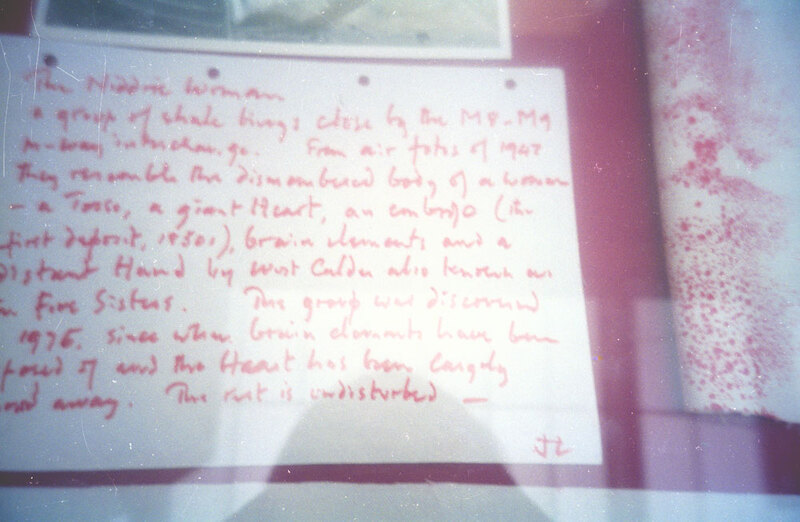 The Niddrie Woman
a group of shale bings close by the M8-M9
m-way interchange. From air fotos of 1947
they resemble the dismembered body of a woman
- a Torso, a giant Heart, an embryo (the
first deposit, 1850s), brain elements and a
distant Hand by West Calder also known as
Five Sisters. The group was discovered
1975, since when brain elements have been
posed of and the Heart has been largely
away. The rest is undisturbed —
JL